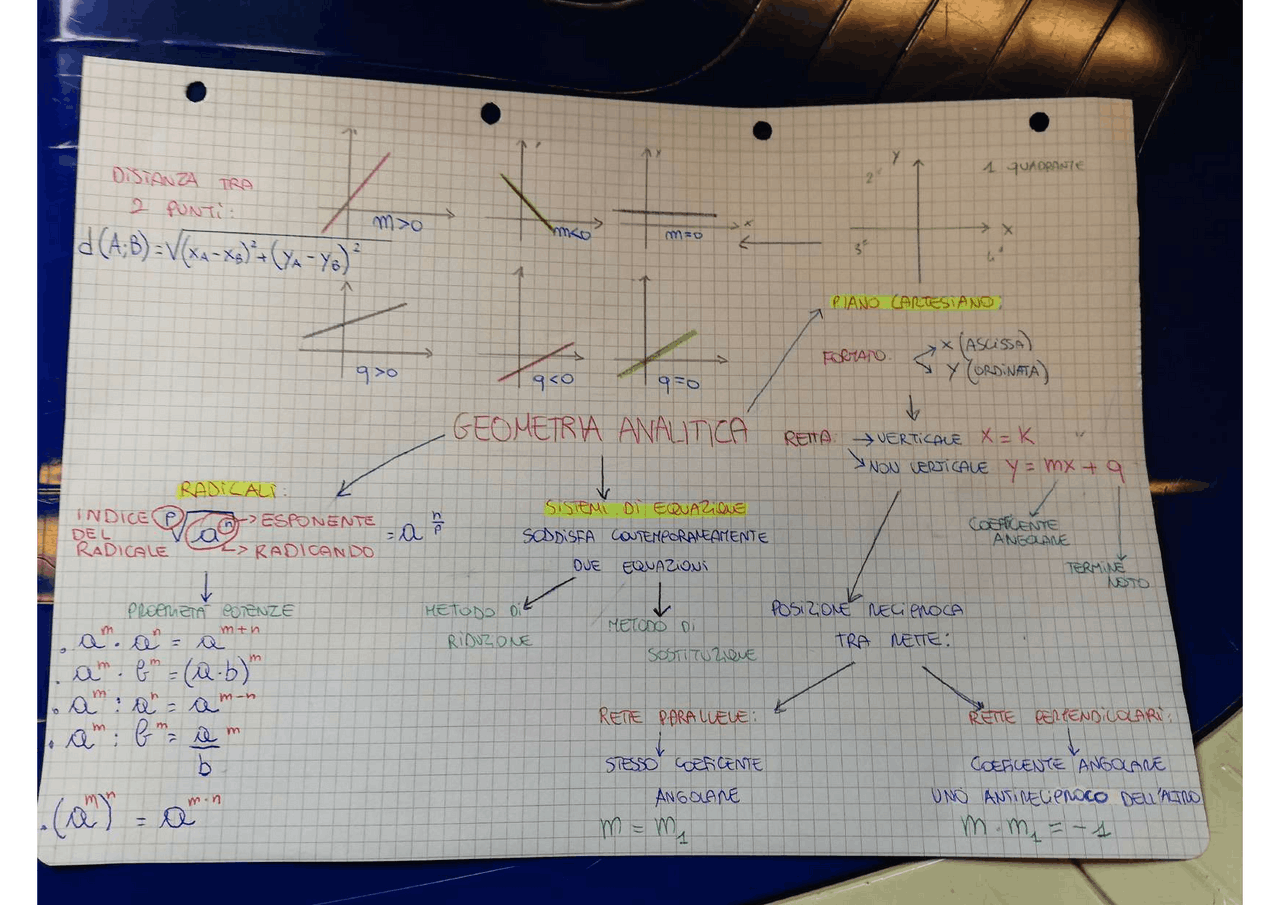 DISTANZA TRA
2 PUNTI:
d(A;B)=√(x_A-x_B)²+(y_A-y_B)²
m>0
m<0
y
x
m=0
y
x
1 QUADRANTE
2°
3°
4°
q>0
q<0
q=0
PIANO CARTESIANO:
FORMATO:
X (ASCISSA)
Y (ORDINATA)
GEOMETRIA ANALITICA
RETTA: →VERTICALE X = K
↘NON VERTICALE Y = mx + q
COEFICENTE
ANGOLARE
TERMINE
NOTO
RADICALI:
INDICE
DEL
RADICALE
ᵖ√aⁿ
→ ESPONENTE
→ RADICANDO
= a^(n/p)
PROPRIETÀ POTENZE
. a^m · a^n = a^(m+n)
. a^m · b^m = (a·b)^m
. a^m : a^n = a^(m-n)
. a^m : b^m = a/b ^m
. (a^m)^n = a^(m·n)
SISTEMI DI EQUAZIONE
SODDISFA CONTEMPORANEAMENTE
DUE EQUAZIONI
METODO DI
RIDUZIONE
METODO DI
SOSTITUZIONE
POSIZIONE RECIPROCA
TRA RETTE:
RETTE PARALLELE:
STESSO COEFICENTE
ANGOLARE
m = m₁
RETTE PERPENDICOLARI:
COEFICENTE ANGOLARE
UNO ANTIRECIPROCO DELL'ALTRO
m · m₁ = -1